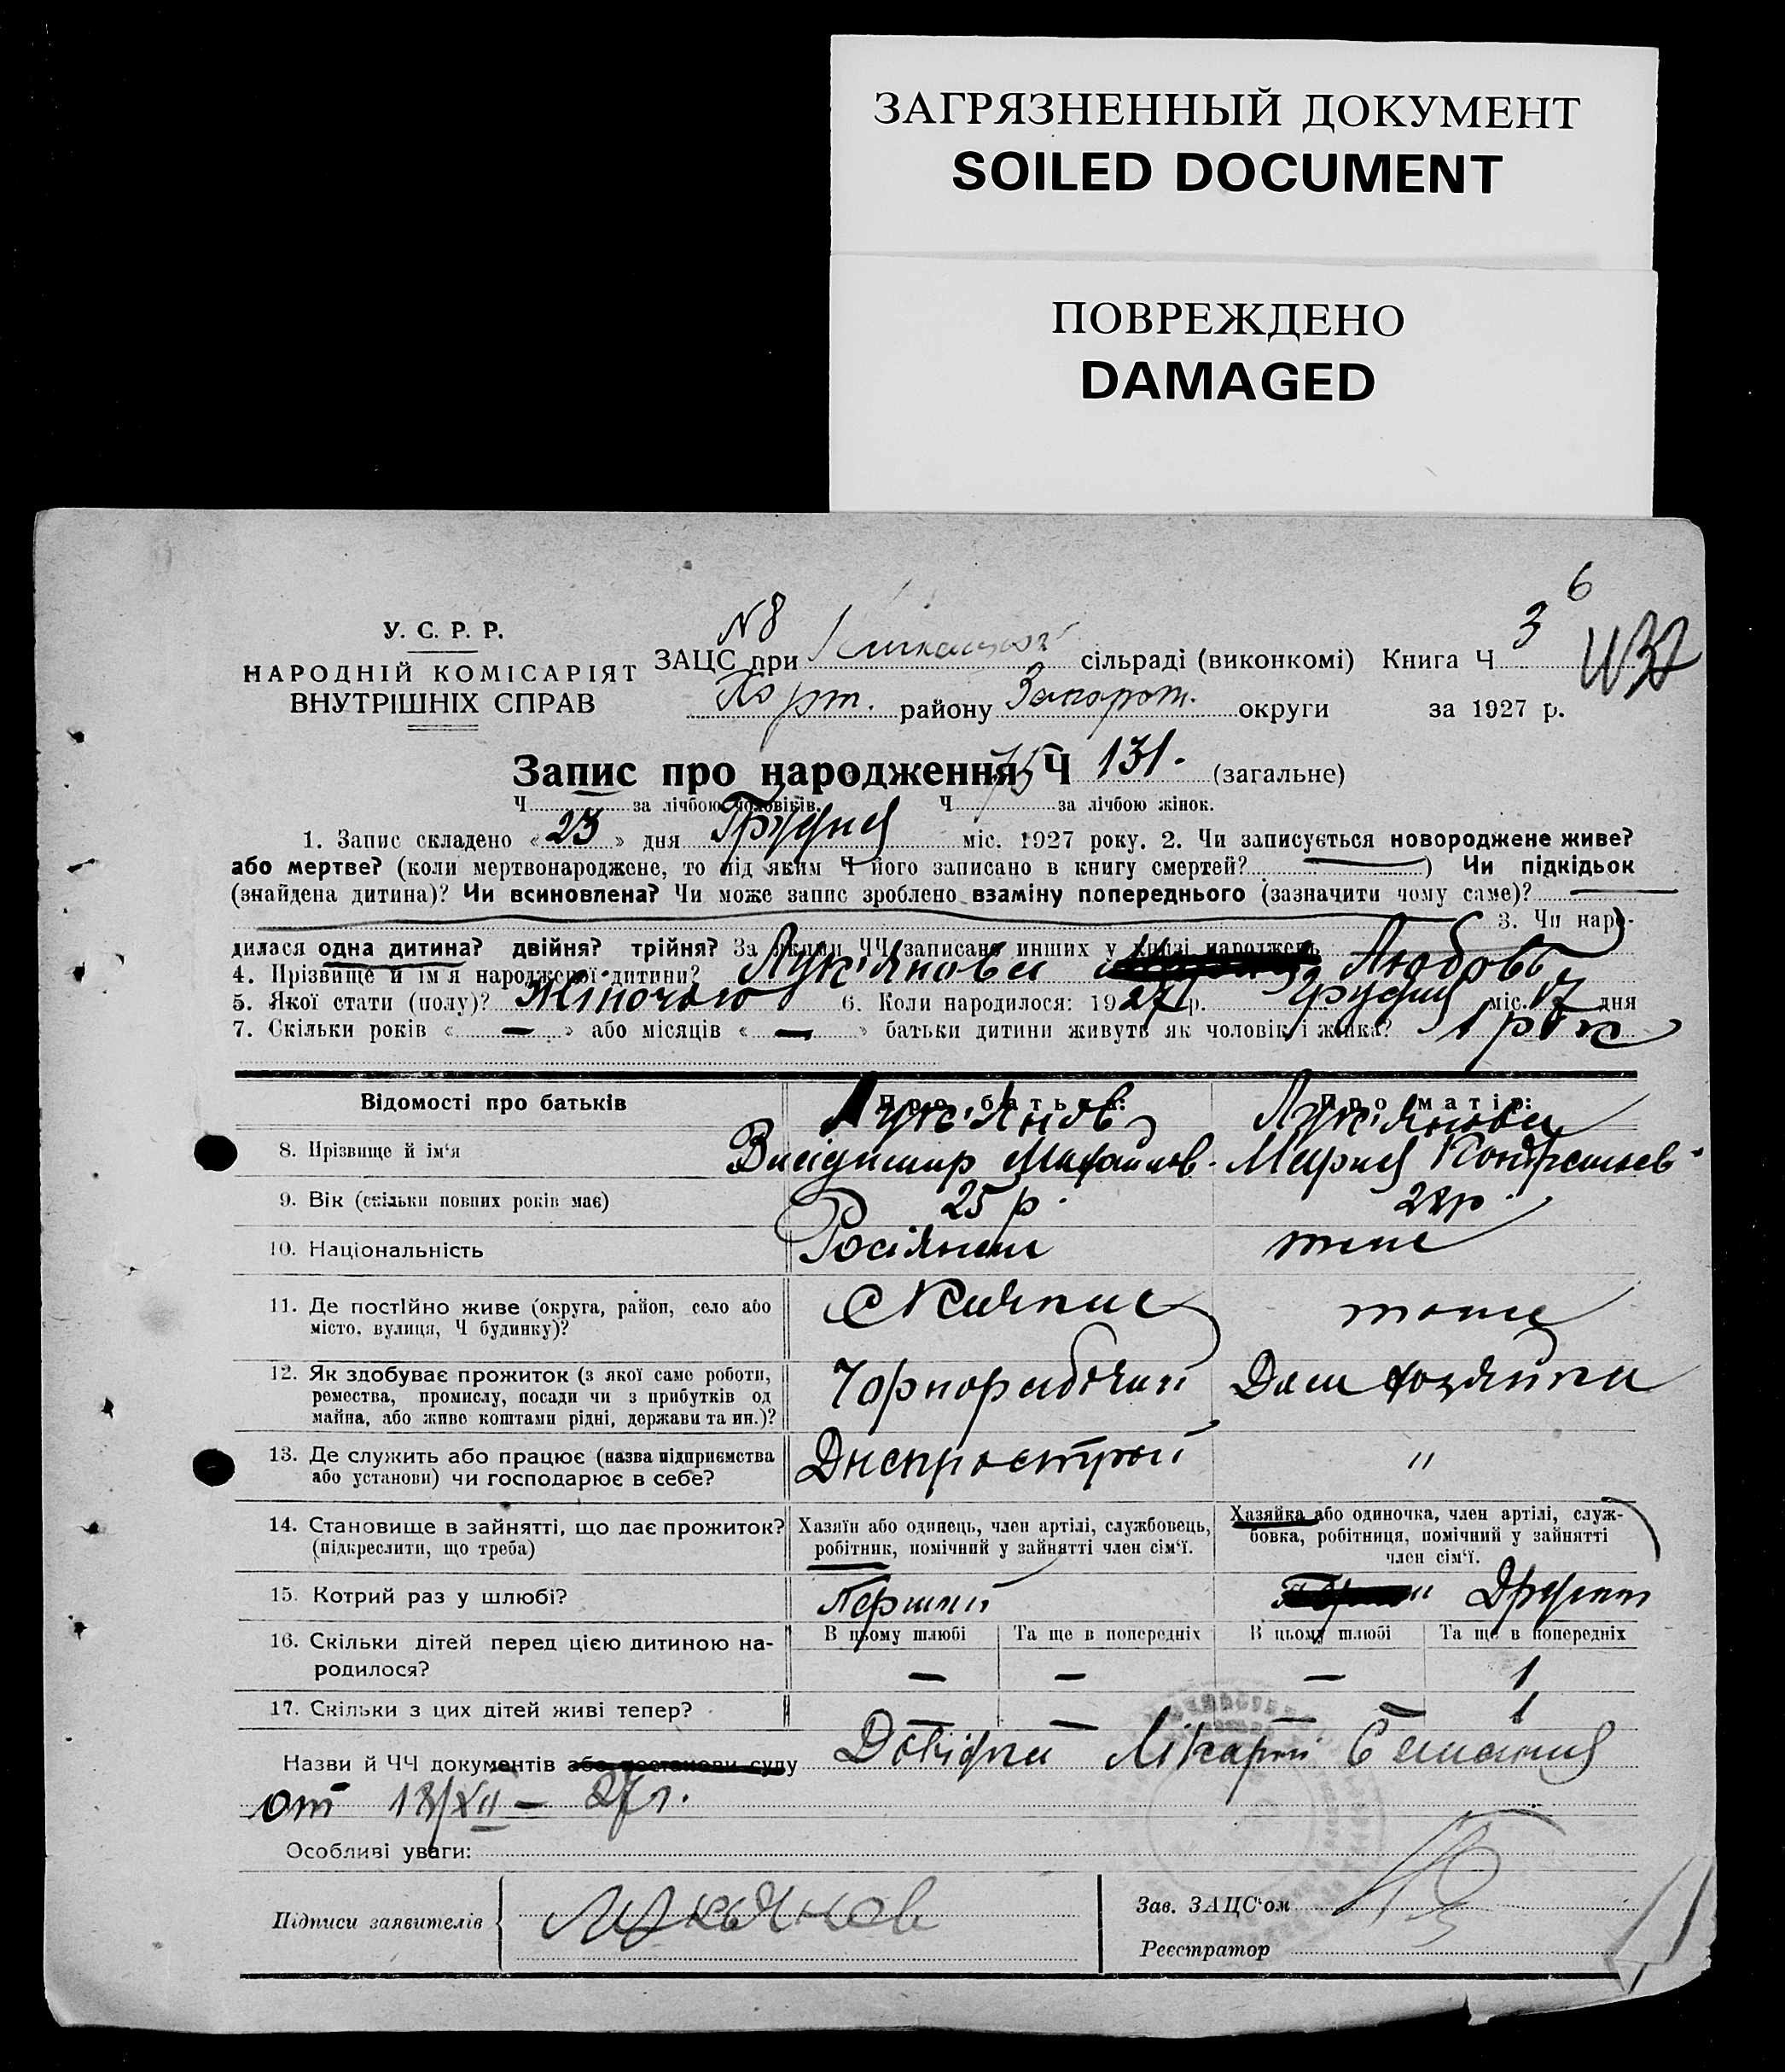 ЗАГРЯЗНЕННЫЙ ДОКУМЕНТ
SOILED DOCUMENT
ПОВРЕЖДЕНО
DAMAGED
6
У. С. Р. Р.
НАРОДНІЙ КОМІСАРІЯТ
ВНУТРІШНІХ СПРАВ
N 8
ЗАЦС при сільраді (виконкомі) Книга Ч 3
Хорт. району Запорот. округи за 1927 р.
Запис про народження Ч 131. (загальне)
Ч за лічбою чоловіків. Ч 75 за лічбою жінок.
1. Запис складено «23» дня Грудня міс. 1927 року. 2. Чи записується новороджене живе?
або мертве? (коли мертвонароджене, то під яким Ч його записано в книгу смертей? ) Чи підкідьок
(знайдена дитина)? Чи всиновлена? Чи може запис зроблено взаміну попереднього (зазначити чому саме)?
3. Чи наро-
дилася одна дитина? двійня? трійня? За якими ЧЧ записано инших у книзі народжень
4. Прізвище й ім'я народженої дитини? Лук'янова Любовь
5. Якої стати (полу)? Жіночого 6. Коли народилося: 1927 р. Грудня міс. 17 дня
7. Скільки років « — » або місяців « — » батьки дитини живуть як чоловік і жінка? 1 рок
Відомості про батьків Про батька: Про матір:
Лук'янов Лук'янова
8. Прізвище й ім'я Владимир Михайлов. Мария
9. Вік (скільки повних років має) 25 р.
10. Національність Росіянин
11. Де постійно живе (округа, район, село або
місто, вулиця, Ч будинку)? с Кичкас
12. Як здобуває прожиток (з якої саме роботи, Чорнорабочий Дом хозяйка
ремества, промислу, посади чи з прибутків од
майна, або живе коштами рідні, держави та ин.)?
13. Де служить або працює (назва підприємства Днепрострой "
або установи) чи господарює в себе?
14. Становище в зайнятті, що дає прожиток? Хазяїн або одинець, член артілі, службовець, Хазяйка або одиночка, член артілі, служ-
(підкреслити, що треба) робітник, помічний у зайнятті член сім'ї. бовка, робітниця, помічний у зайнятті
член сім'ї.
15. Котрий раз у шлюбі? Перший Другий
16. Скільки дітей перед цією дитиною на- В цьому шлюбі Та ще в попередніх В цьому шлюбі Та ще в попередніх
родилося? — — — 1
17. Скільки з цих дітей живі тепер? — — — — 1
Назви й ЧЧ документів або постанови суду Довідка Лікарні
от 18/XII - 27 г.
Особливі уваги:
Підписи заявителів Лукянов
Зав. ЗАЦС'ом
Реєстратор